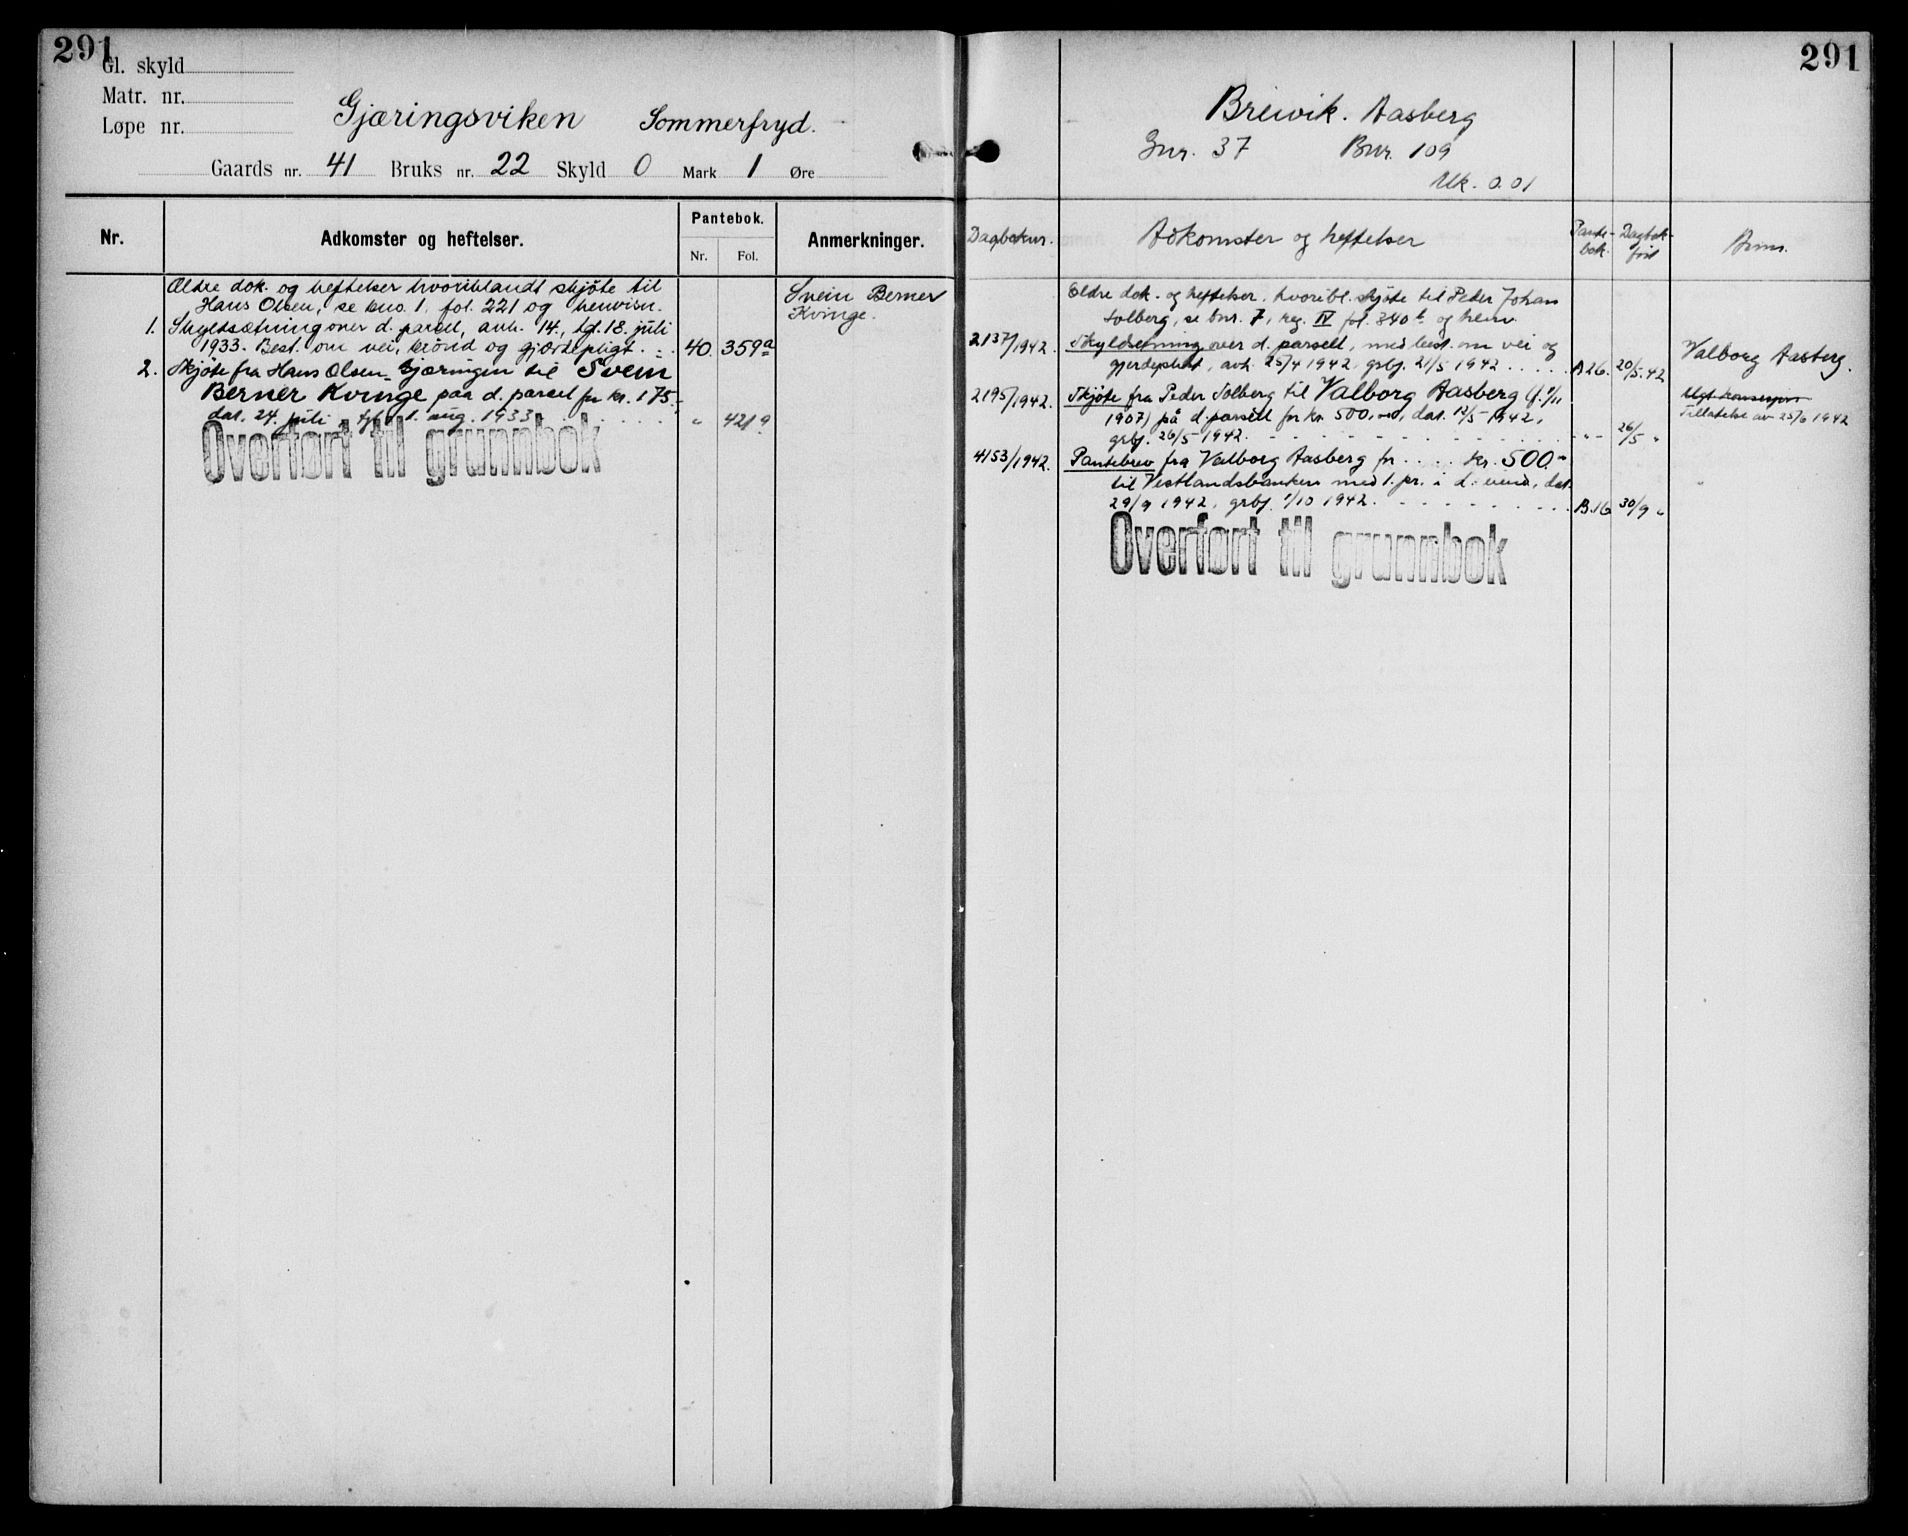 291
Gl. skyld
Matr. nr.
Løpe nr.
Gjæringsviken Sommerfryd.
Gaards nr. 41 Bruks nr. 22 Skyld 0 Mark 1 Øre
Nr. Adkomster og heftelser. Pantebok. Nr. Fol. Anmerkninger.
Ældre dok. og heftelser hvoriblandt skjøte til
Hans Olsen, se bno. 1, fol. 221 og henvisn.
Svein Berner
Kvinge.
1. Skyldsætning over d. parsel, avh. 14., tgl. 18. juli
1933. Best. om vei, brønd og gjærdepligt. 40. 359a
2. Skjøte fra Hans Olsen Gjæringen til Svein
Berner Kvinge paa d. parsel for kr. 175,-
dat. 24. juli tgl. 1. aug. 1933 " 421a
Overført til grunnbok
291
Breivik. Aasberg
Gnr. 37 Bnr. 109
Mk. 0.01
Dagboknr. Adkomster og heftelser Pante-
bok. Dagbok-
ført Anm.
Eldre dok. og heftelser, hvoribl. skjøte til Peder Johan
Solberg, se bnr. 7, reg. IV fol. 340b og henv.
2137/1942. Skyldsetning over d. parsell, med best. om vei og
gjerdeplikt, avh. 25/4 1942, grbf. 21/5 1942 B 26. 20/5.42
Valborg Aasberg.
2195/1942. Skjøte fra Peder Solberg til Valborg Aasberg (f. 1/11
1907) på d. parsell for kr. 500,-, dat. 12/5 1942,
grbf. 26/5 1942. -"- 26/5 "
Tillatelse av 25/6 1942
4153/1942. Pantebrev fra Valborg Aasberg for kr. 500.-
til Vestlandsbanken med 1. pr. i d. eiend., dat.
29/9 1942, grbf. 1/10 1942. B.16 30/9 "
Overført til grunnbok